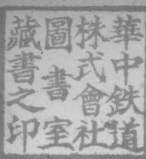 華中鉄道
株式會社
圖書室
藏書之印